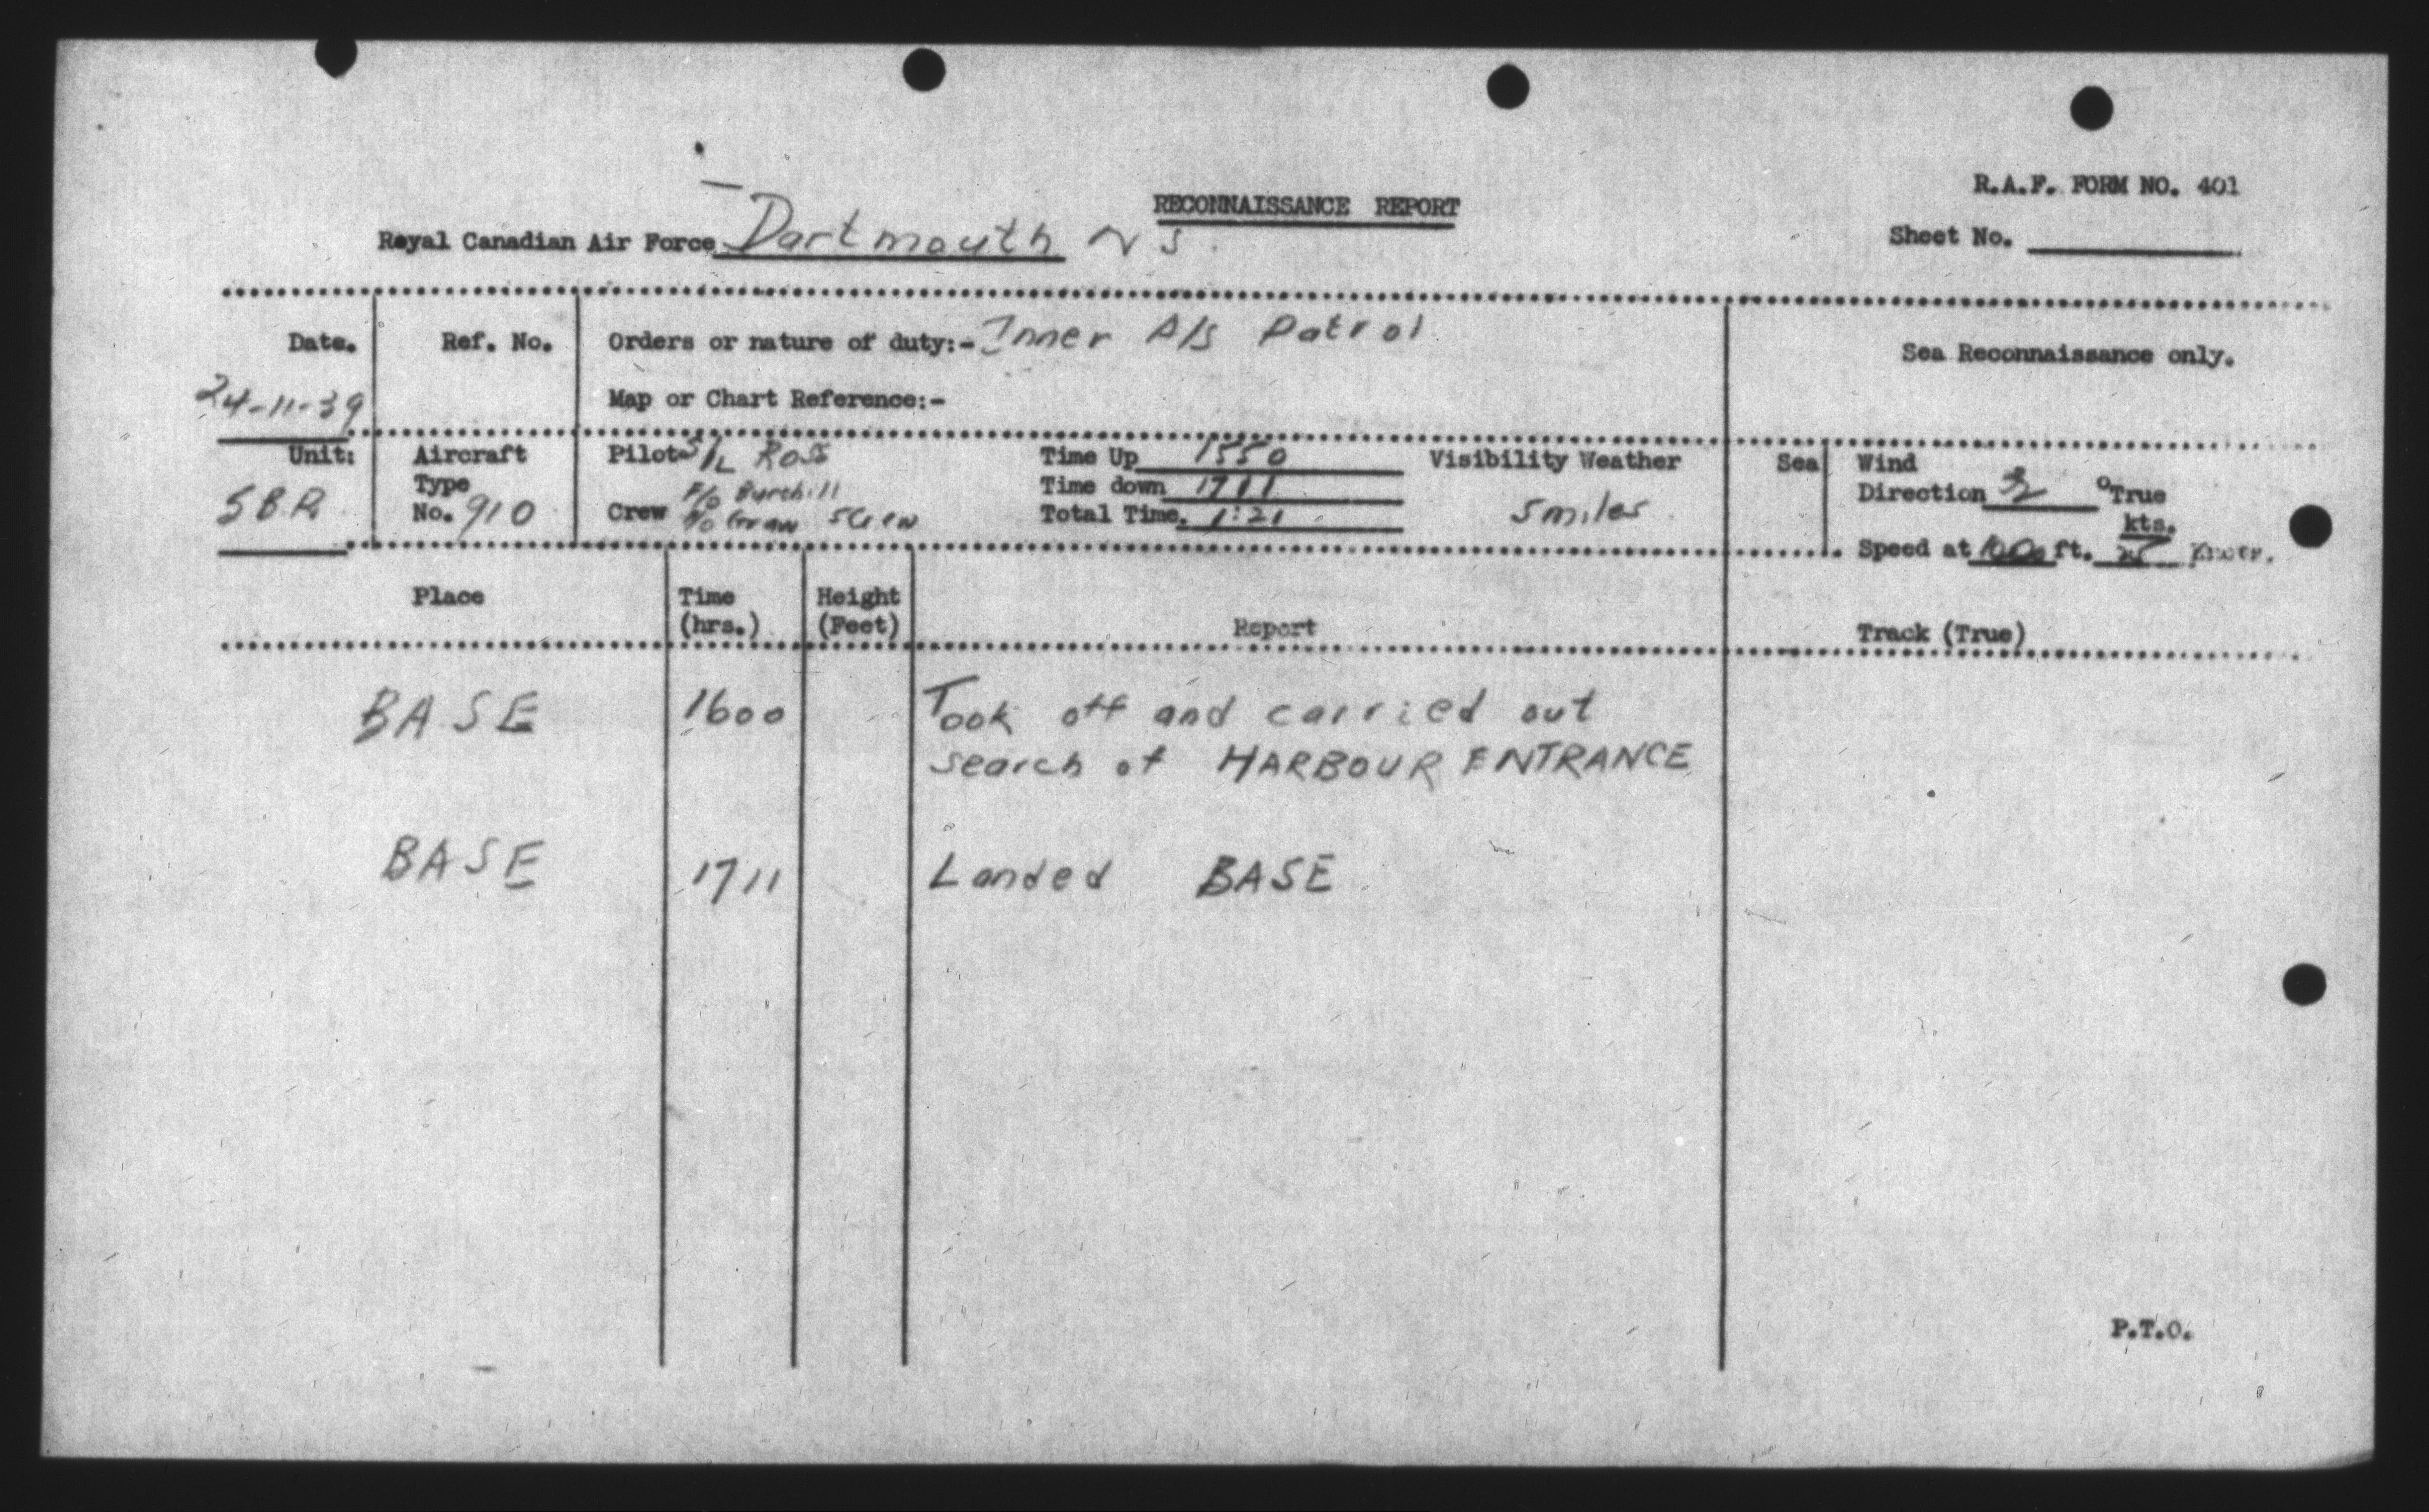 R.A.F. FORM NO. 401
RECONNAISSANCE REPORT
Royal Canadian Air Force Dartmouth NS.
Sheet No.
Date. Ref. No. Orders or nature of duty:- Inner A/S Patrol
Sea Reconnaissance only.
24-11-39 Map or Chart Reference:-
Unit: Aircraft Pilot S/L Ross Time Up 1550 Visibility Weather Sea Wind
Type F/O Burchill Time down 1711 Direction °True
SBR No. 910 Crew Total Time. 1:21 5 miles kts.
Speed at 1000 ft. 25 Knots.
Place Time Height
(hrs.) (Feet) Report Track (True)
BASE 1600 Took off and carried out
search of HARBOUR ENTRANCE
BASE 1711 Landed BASE
P.T.O.